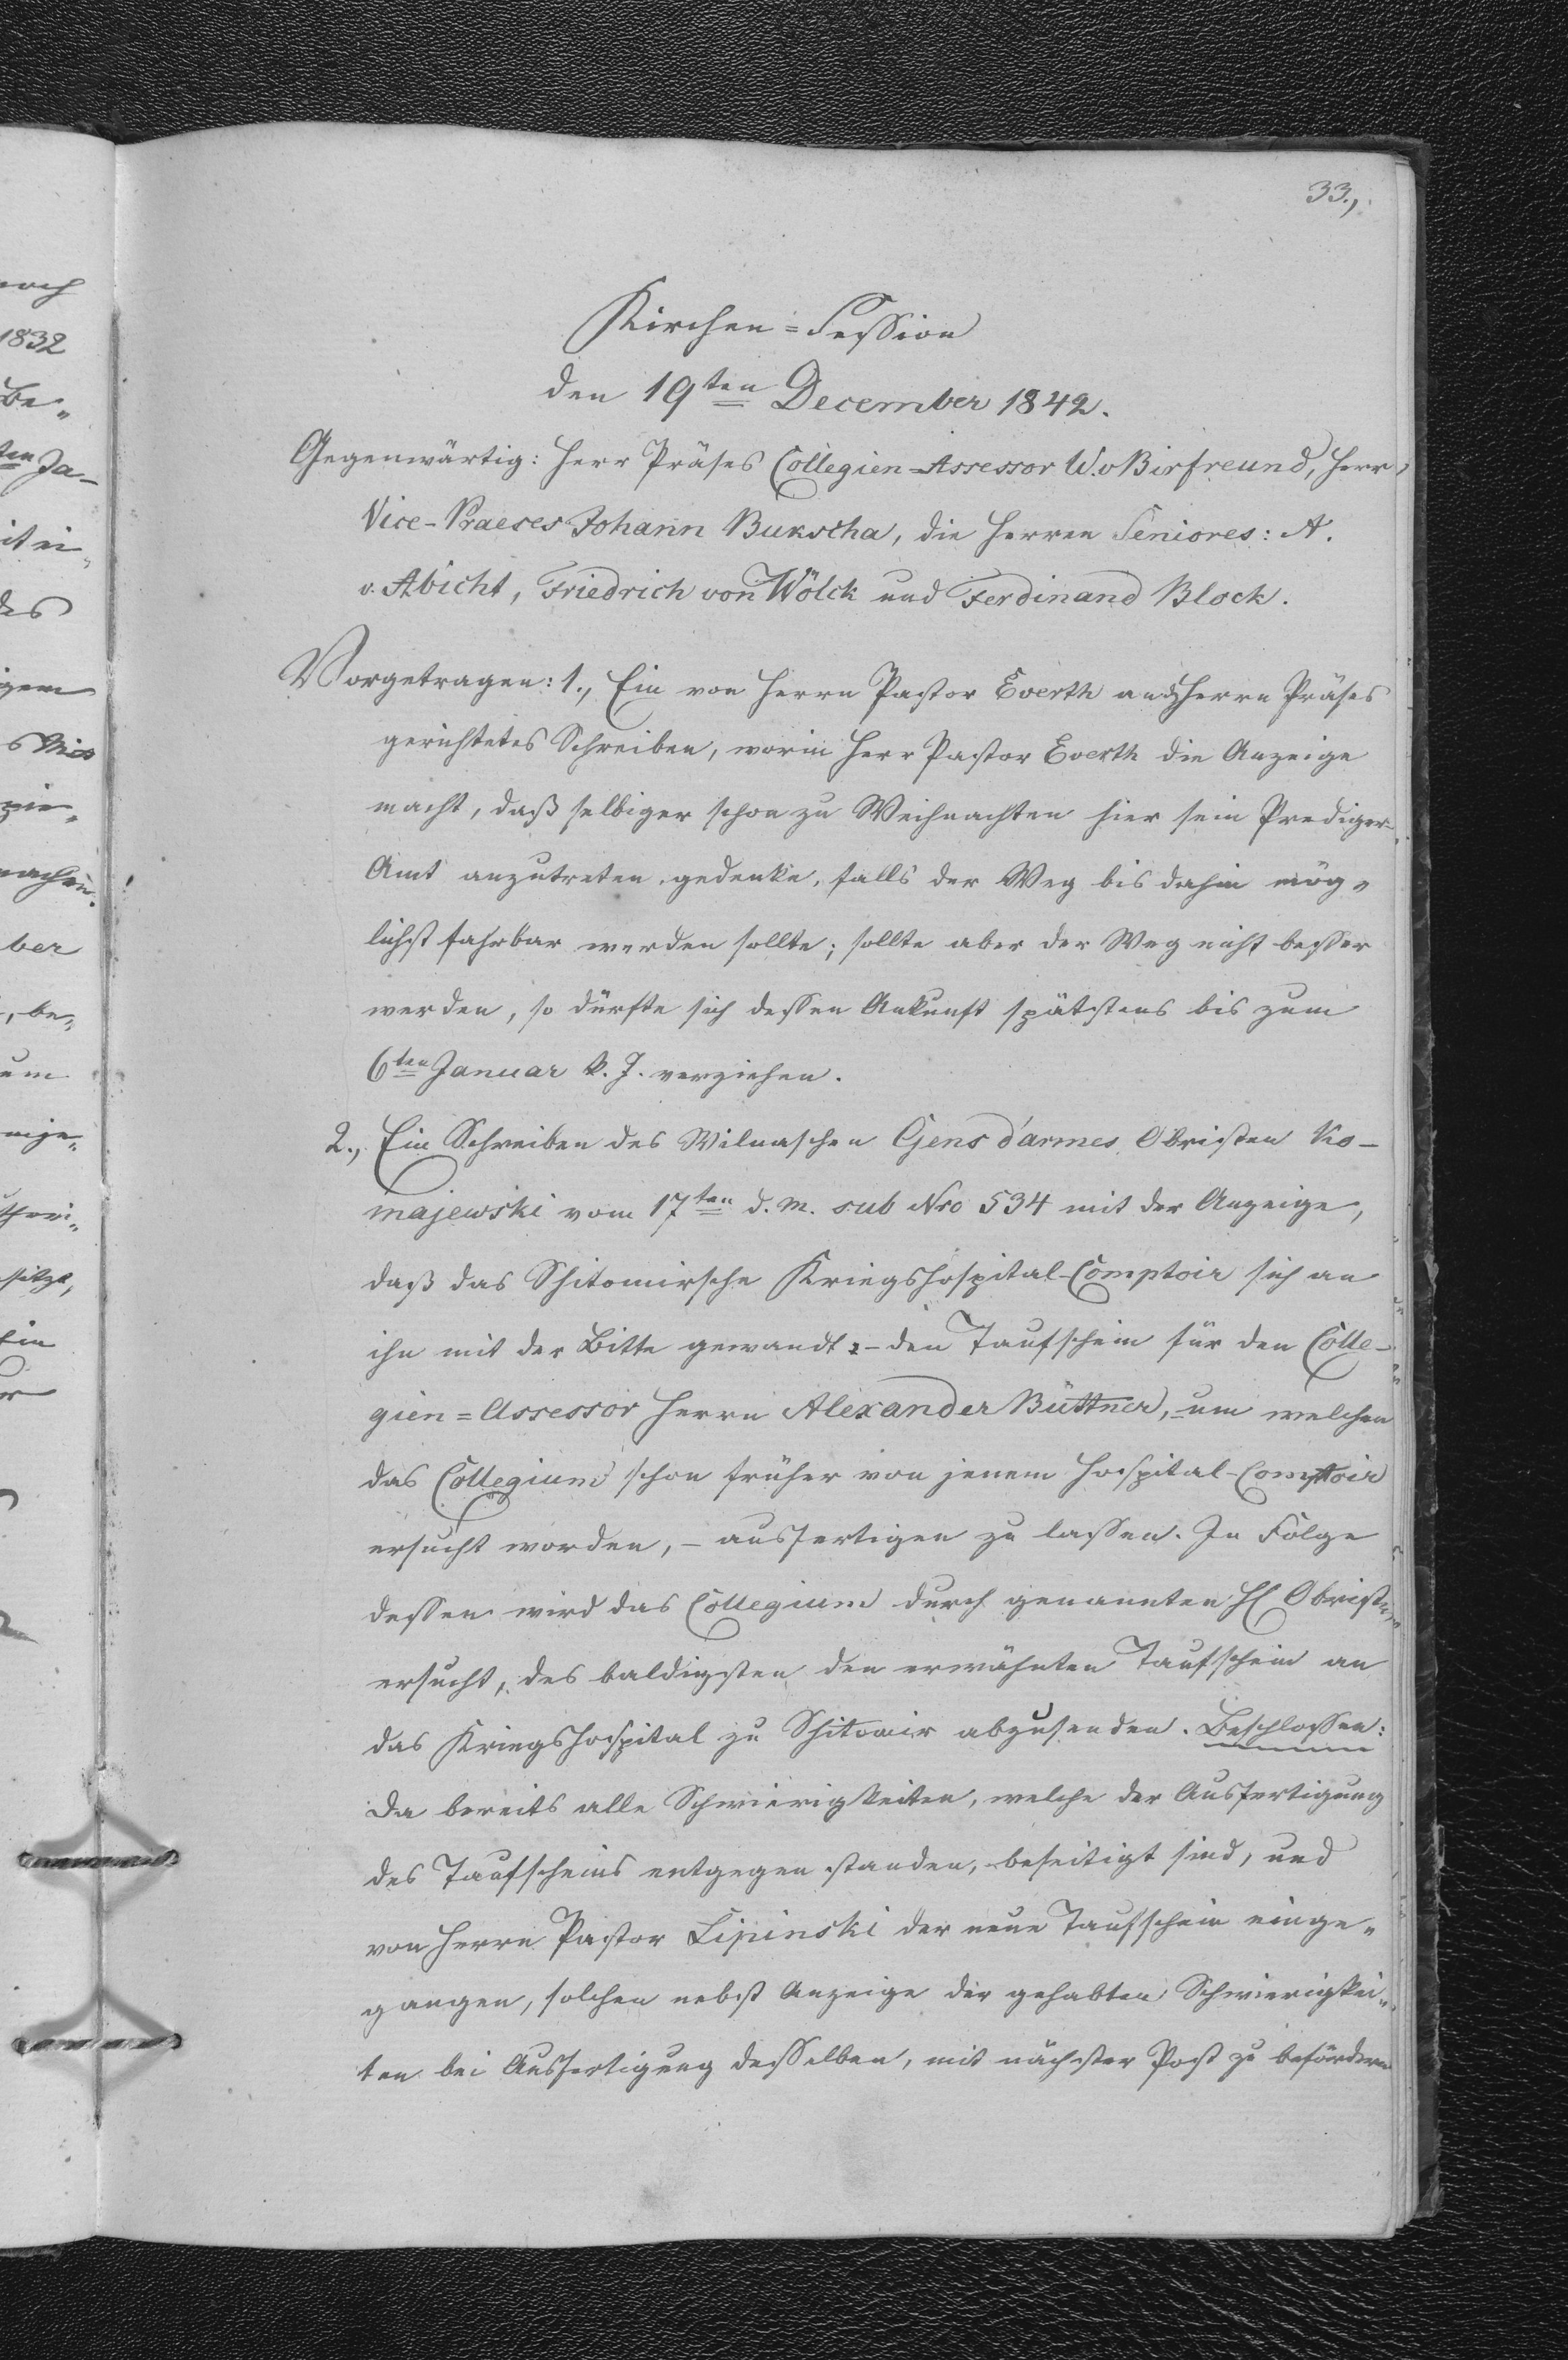 33.,
Kirchen=Session
den 19ten December 1842.
Gegenwärtig: Herr Präses Collegien=Assessor W. v Birfreund, Herr
Vice-Praeses Johann Bukscha, die Herren Seniores: A.
v. Abicht, Friedrich von Wölck und Ferdinand Block.
Vorgetragen: 1., Ein von Herrn Pastor Everth an d Herrn Präses
gerichtetes Schreiben, worin Herr Pastor Everth die Anzeige
macht, daß selbiger schon zu Weihnachten hier sein Prediger-
Amt anzutreten gedenke, falls der Weg bis dahin mög-
lichst fahrbar werden sollte; sollte aber der Weg nicht besser
werden, so dürfte sich dessen Ankunft spätstens bis zum
6ten Januar k. J. verziehen.
2., Ein Schreiben des Wilnaschen Gens d'armes Obristen Ko-
majewski vom 17ten d. M. sub Nro 534 mit der Anzeige,
daß das Shitomirsche Kriegshospital-Comptoir sich an
ihn mit der Bitte gewandt: - den Taufschein für den Colle-
gien=Assessor Herrn Alexander Büttner, - um welchen
das Collegium schon früher von jenem Hospital-Comptoir
ersucht worden, - ausfertigen zu lassen. In Folge
dessen wird das Collegium durch genannten H Obristen
ersucht, des baldigsten den erwähnten Taufschein an
das Kriegshospital zu Shitomir abzusenden. Beschlossen:
Da bereits alle Schwierigkeiten, welche der Ausfertigung
des Taufscheins entgegen standen, beseitigt sind, und
von Herrn Pastor Lipinski der neue Taufschein einge-
gangen, solchen nebst Anzeige der gehabten Schwierigkei-
ten bei Ausfertigung desselben, mit nächster Post zu befördern